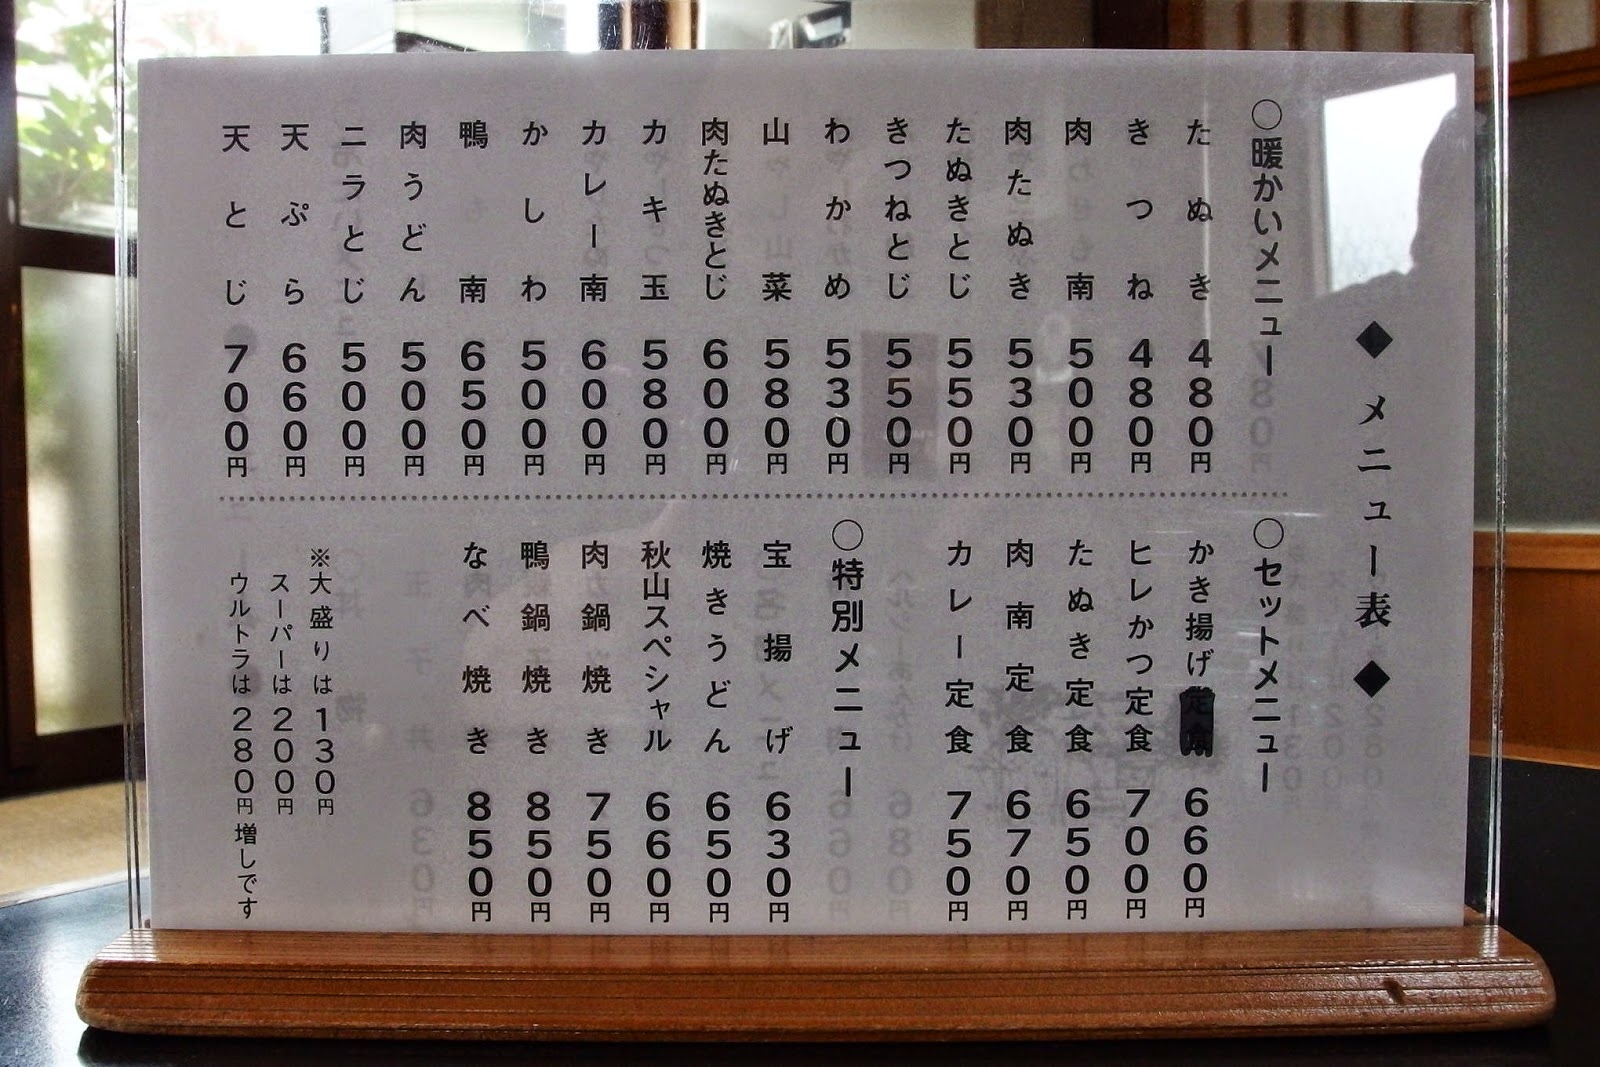 ◆ メニュー表 ◆
○暖かいメニュー
たぬき 480円
きつね 480円
肉南 500円
肉たぬき 530円
たぬきとじ 550円
きつねとじ 550円
わかめ 530円
山菜 580円
肉たぬきとじ 600円
カキ玉 580円
カレー南 600円
かしわ 500円
鴨南 650円
肉うどん 500円
ニラとじ 500円
天ぷら 660円
天とじ 700円
○セットメニュー
かき揚げ定食 660円
ヒレかつ定食 700円
たぬき定食 650円
肉南定食 670円
カレー定食 750円
○特別メニュー
宝揚げ 630円
焼きうどん 650円
秋山スペシャル 660円
肉力鍋焼き 750円
鴨鍋焼き 850円
なべ焼き 850円
※大盛りは130円
スーパーは200円
ウルトラは280円増しです